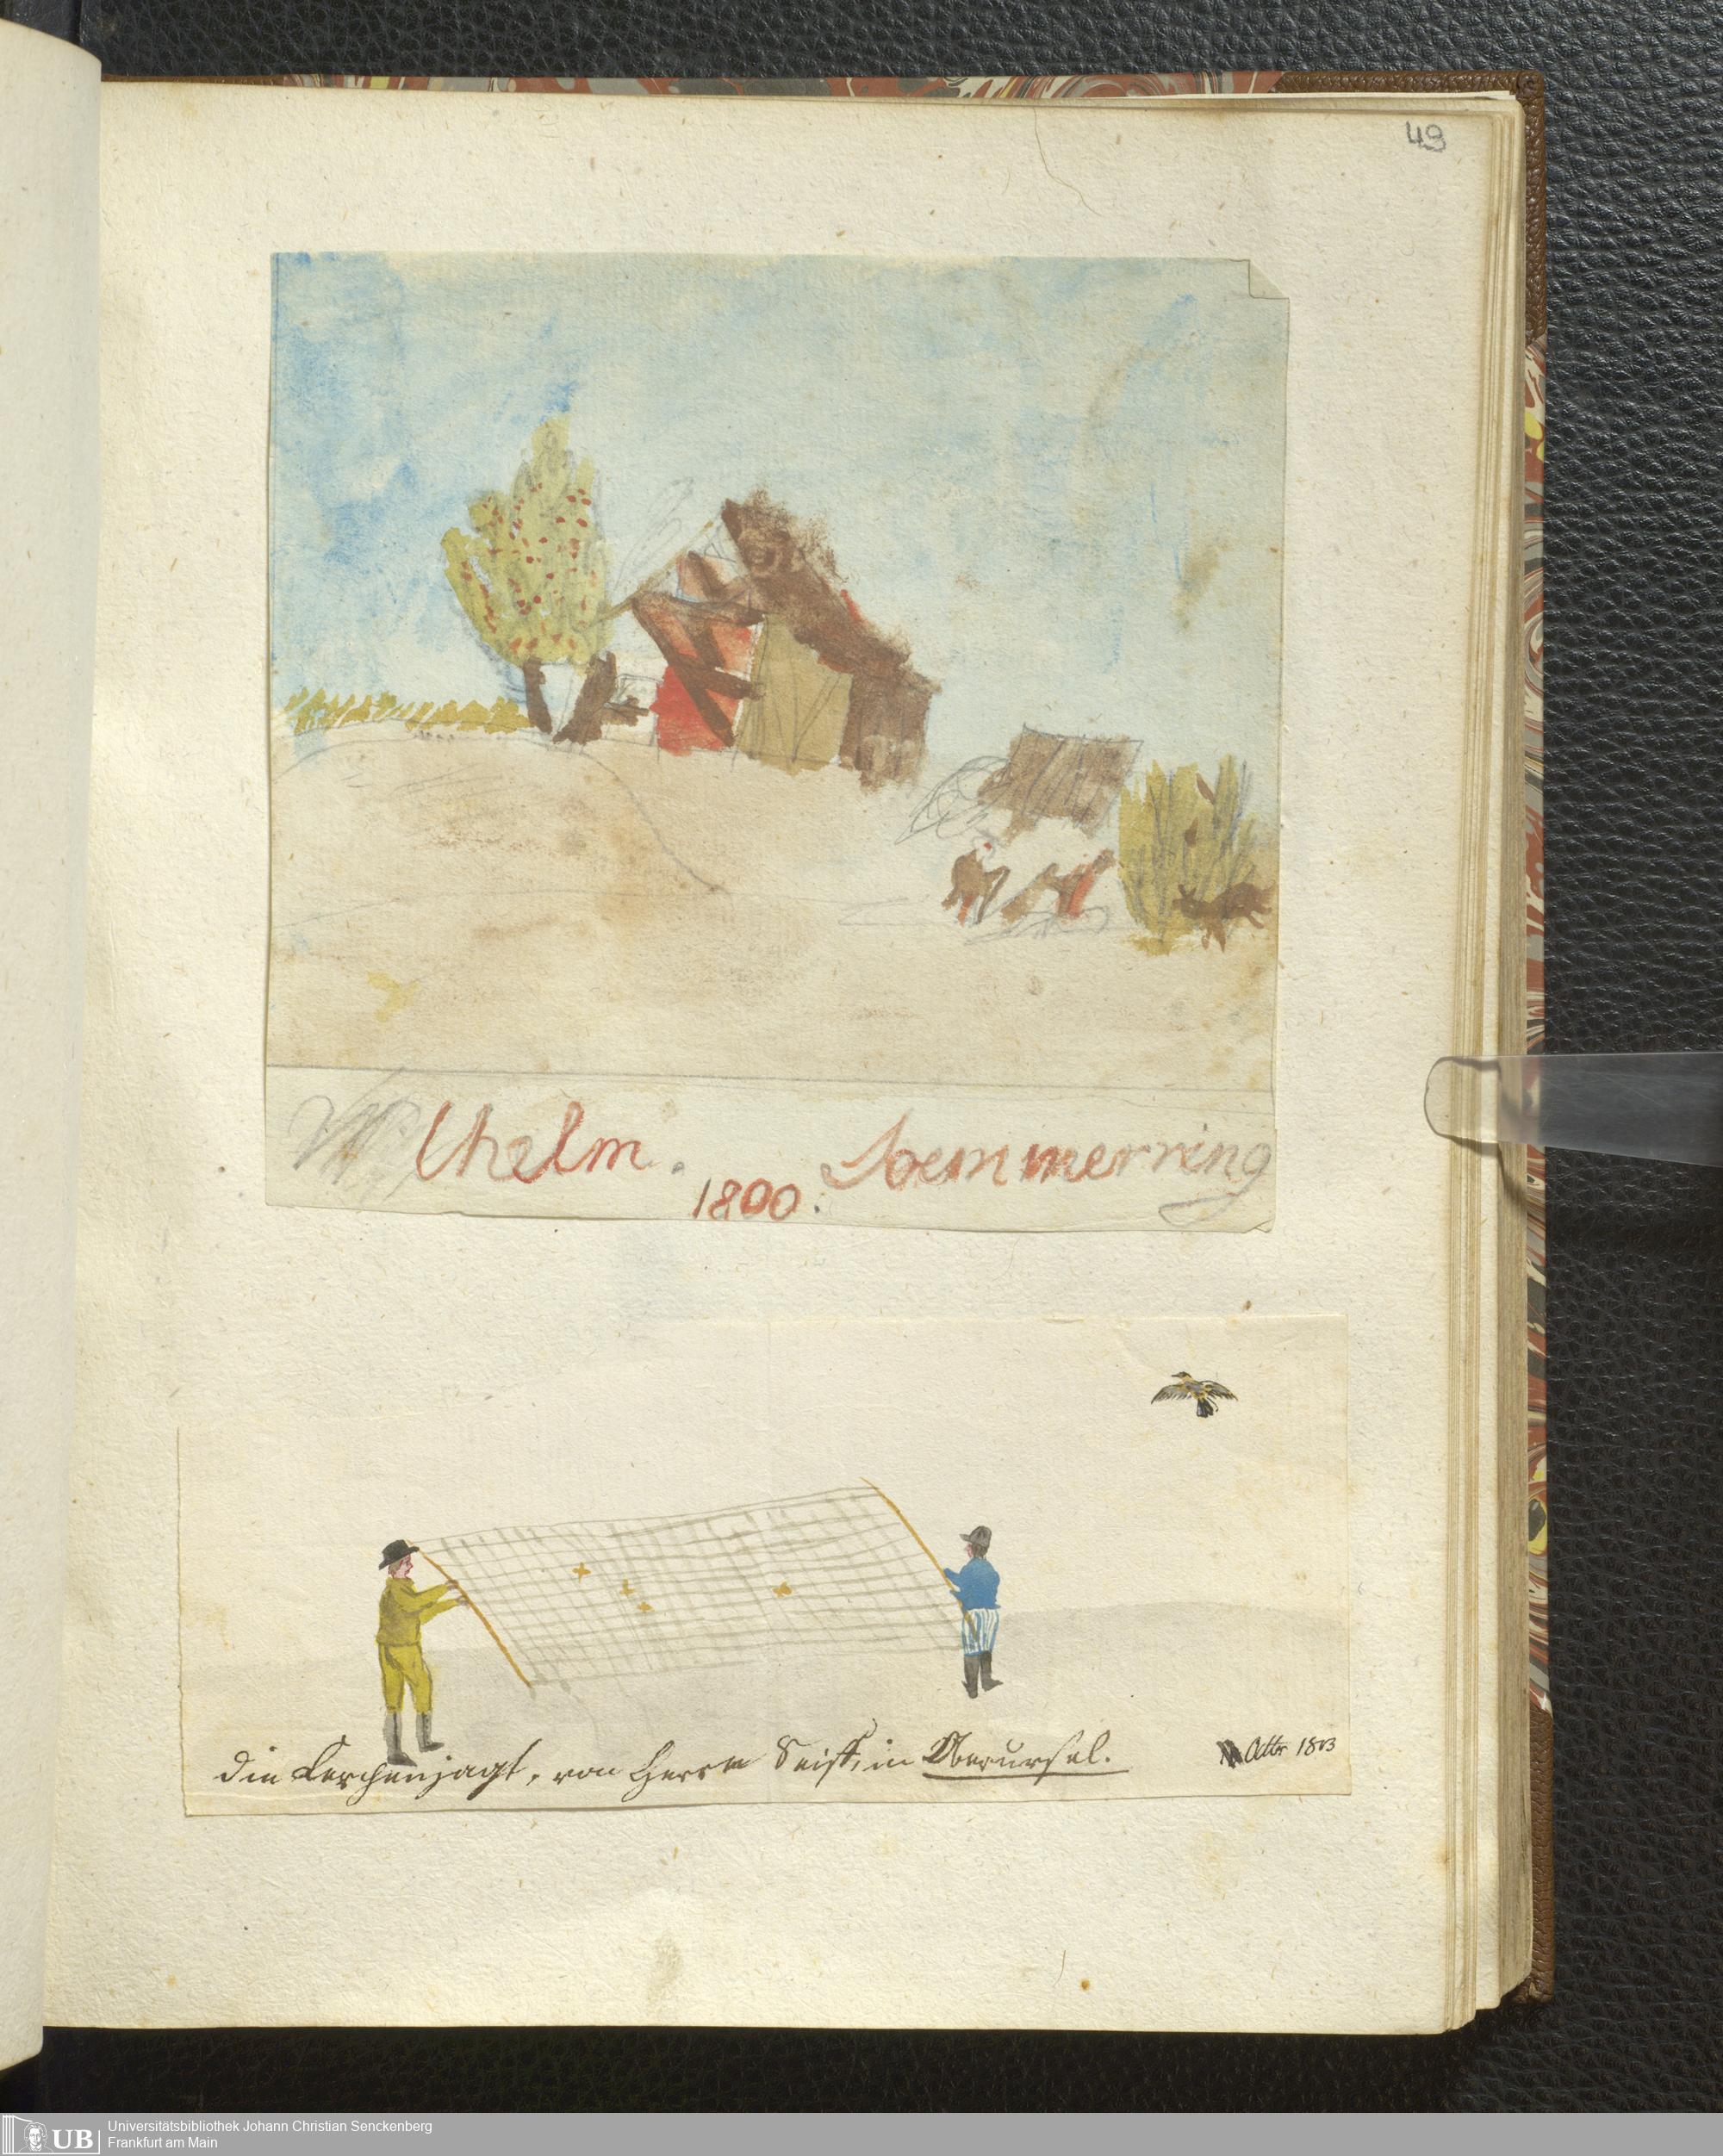 49
Wilhelm. Soemmerring
1800.
die Lerchenjagt, von Herrn Seiff, in Oberursel.
Octbr 1803
UB
Universitätsbibliothek Johann Christian Senckenberg
Frankfurt am Main